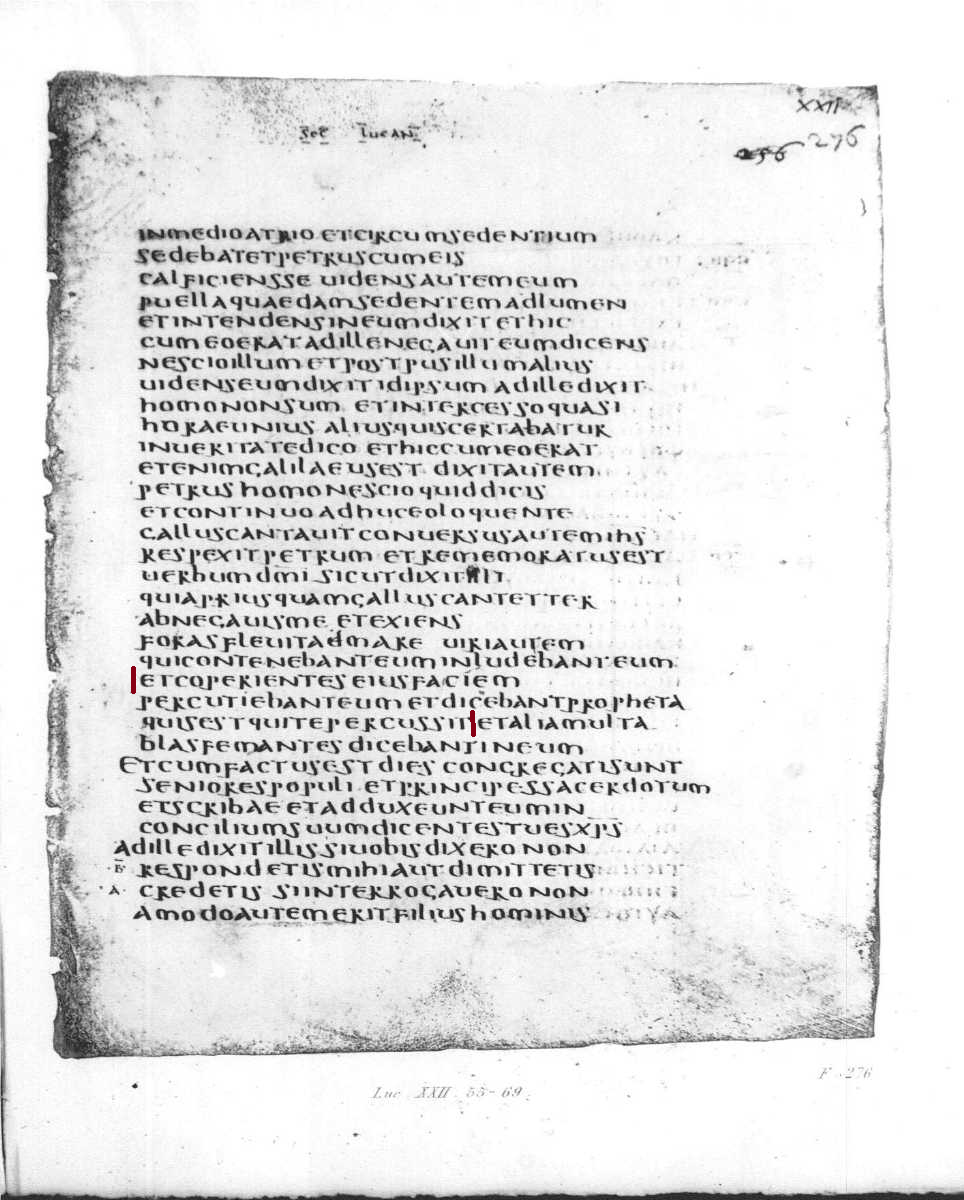 XXII
sec lucan
256 276
inmedioatrio etcircumsedentium
sedebatetpetruscumeis
calficiensse uidensautemeum
puellaquaedamsedentemadlumen
etintendensineumdixitethic
cumeoeratadillenegauiteumdicens
nescioillum etpostpusillumalius
uidenseumdixitidipsum adilledixit
homononsum etintercessoquasi
horaeunius aliusquiscertabatur
inueritatedico ethiccumeoerat
etenimgalilaeusest dixitautem
petrus homonescioquiddicis
etcontinuoadhuceoloquente
galluscantauitconuersusautemihs
respexitpetrum etrememoratusest
uerbumdmi sicutdixit
quiapriusquamgalluscantetter
abnegauisme etexiens
forasfleuitadmare uiriautem
quicontenebanteuminludebanteum
etcoperienteseiusfaciem
percutiebanteumetdicebantpropheta
quisestquitepercussitetaliamulta
blasfemantesdicebantineum
etcumfactusestdies congregatisunt
seniorespopuli etprincipessacerdotum
etscribae etadduxeunteumin
conciliumsuumdicentestuesxps
adilledixitillissiuobisdixeronon
B respondetismihiautdimittetis
A credetis siinterrogaueronon
amodoautemeritfiliushominis
F 276
Luc XXII 55-69